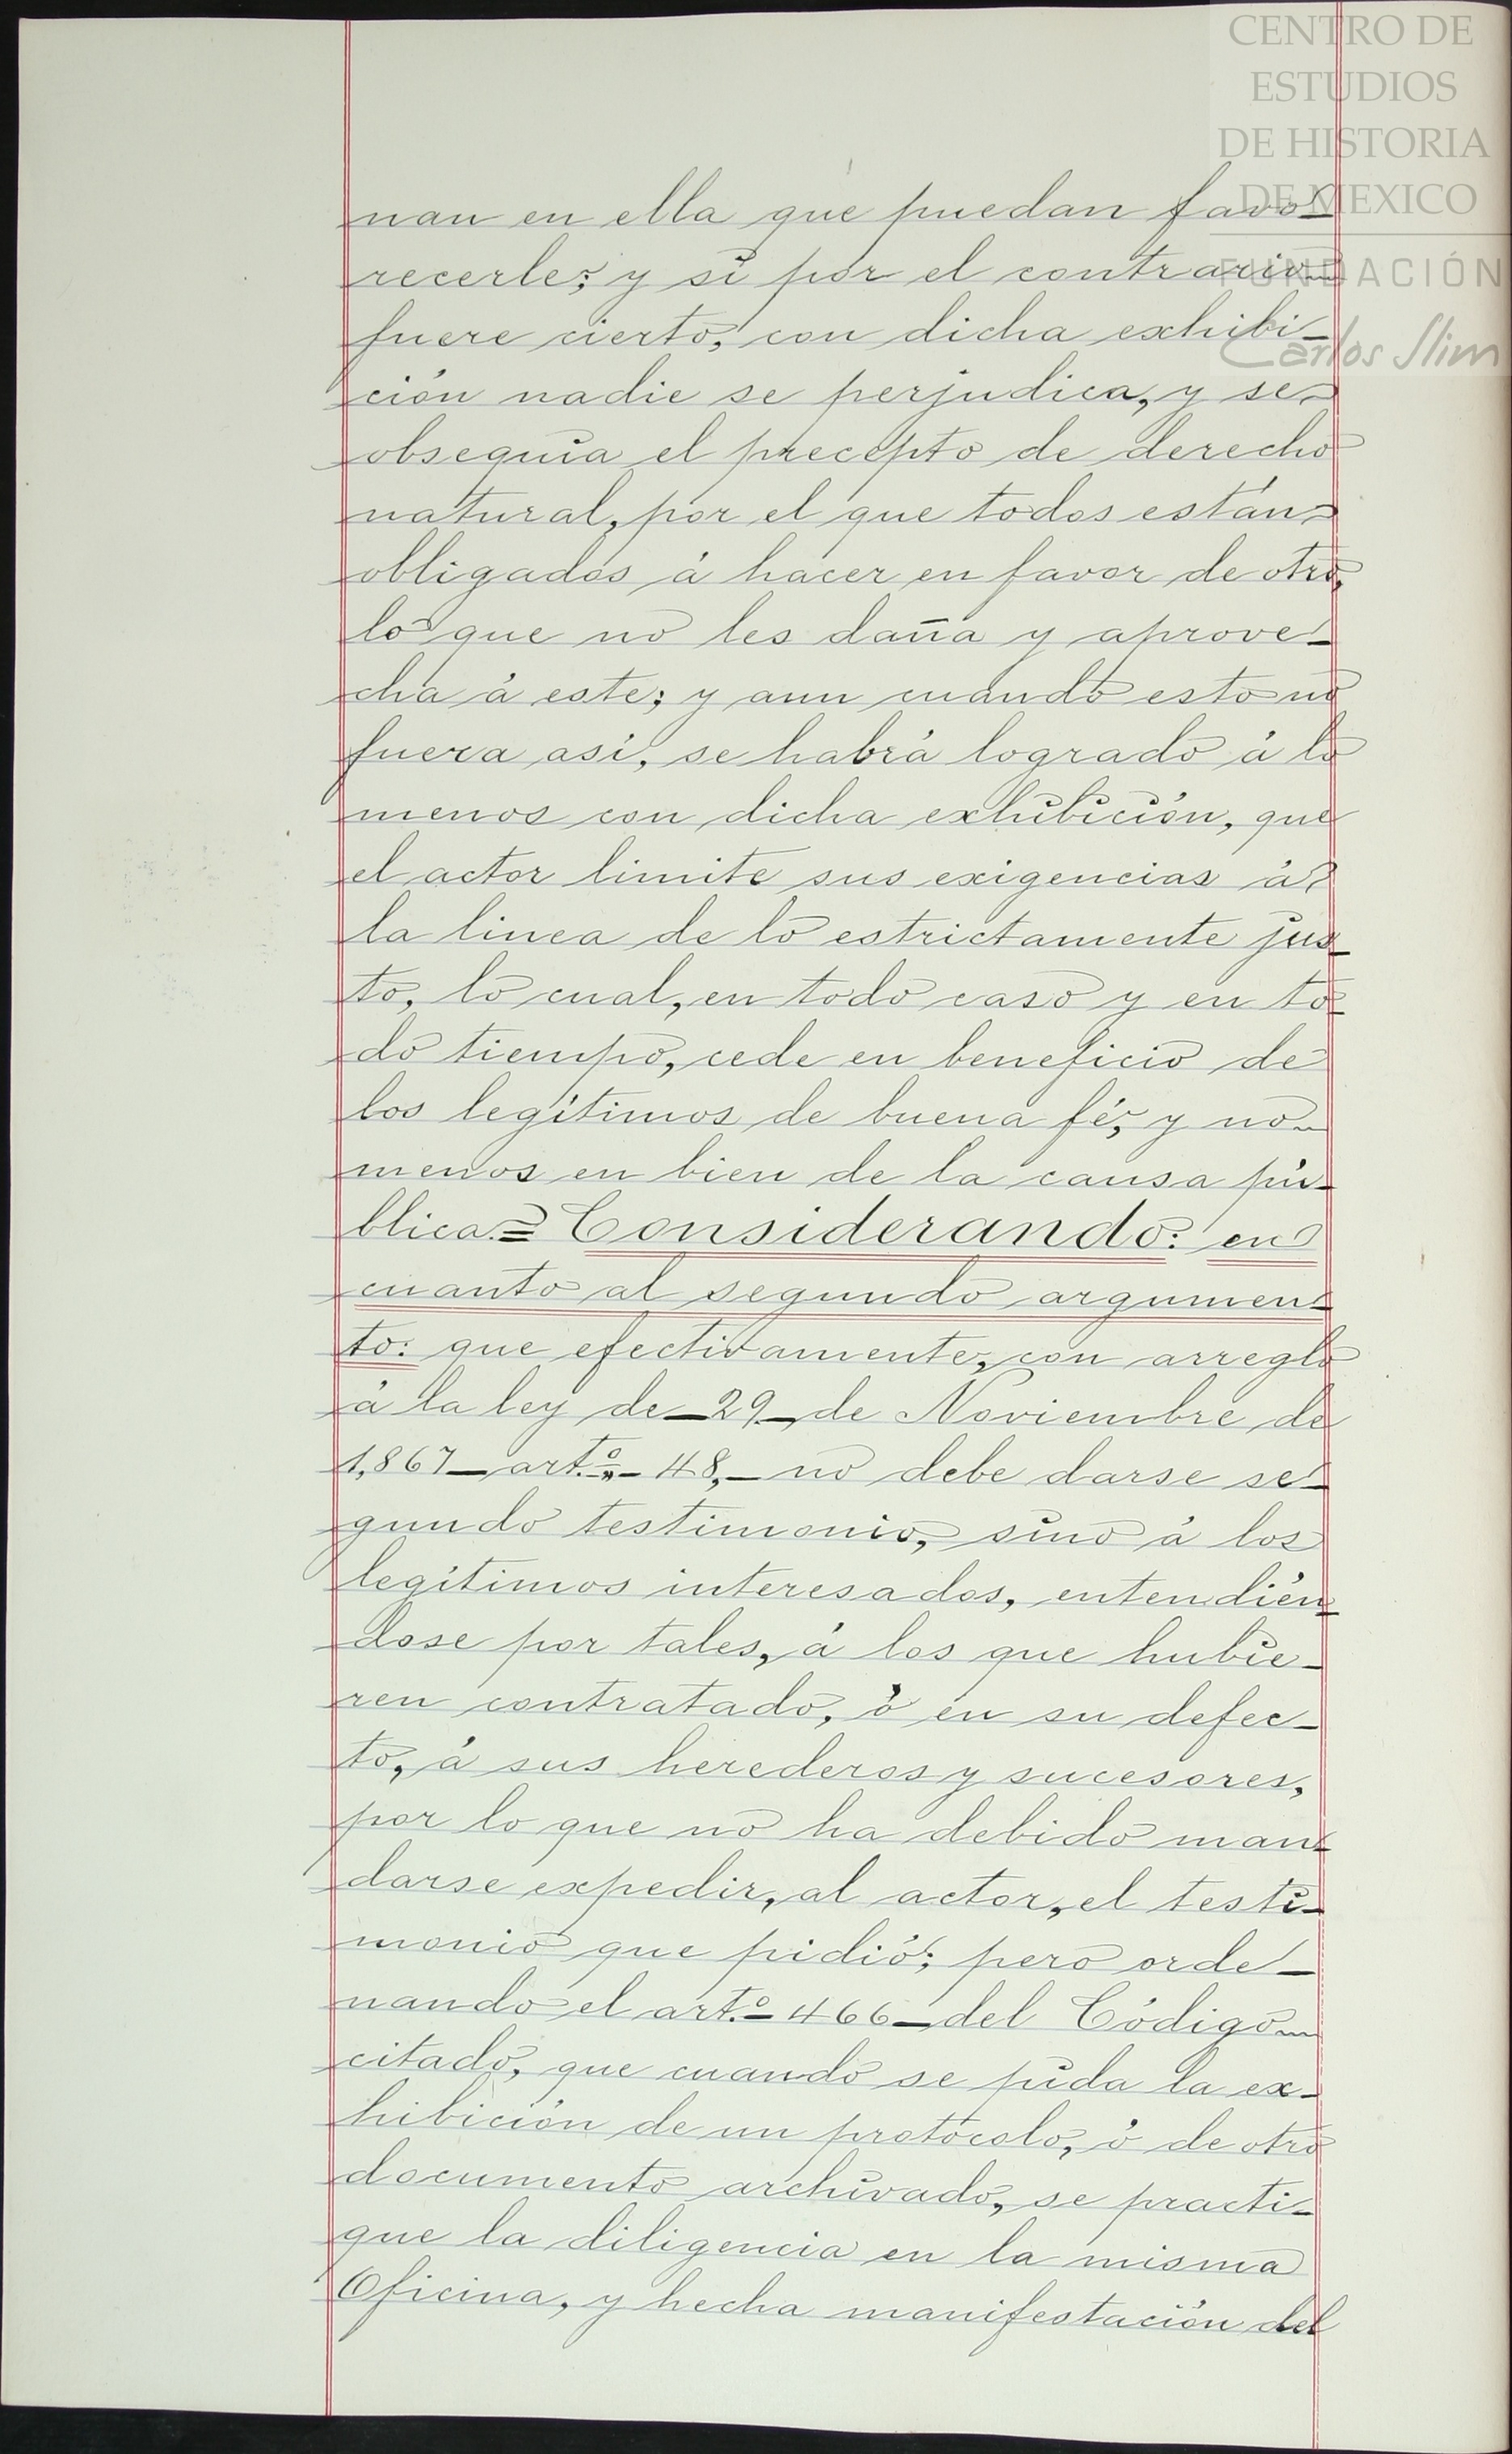 CENTRO DE
ESTUDIOS
DE HISTORIA
DE MEXICO
FUNDACIÓN
Carlos Slim
nan en ella que puedan favo-
recerle; y si por el contrario
fuere cierto, con dicha exhibi-
ción nadie se perjudica, y se
obsequia el precepto de derecho
natural, por el que todos están
obligados á hacer en favor de otro,
lo que no les daña y aprove-
cha á este; y aun cuando esto no
fuera así, se habrá logrado á lo
menos con dicha exhibición, que
el actor limite sus exigencias á
la linea de lo estrictamente jus-
to, lo cual, en todo caso y en to-
do tiempo, cede en beneficio de
los legítimos de buena fé, y no
menos en bien de la causa pú-
blica.= Considerando: en
cuanto al segundo argumen-
to: que efectivamente, con arreglo
á la ley de_29_de Noviembre de
1,867_art.º_48,_no debe darse se-
gundo testimonio, sino á los
legítimos interesados, entendién-
dose por tales, á los que hubie-
ren contratado, ó en su defec-
to, á sus herederos y sucesores,
por lo que no ha debido man-
darse expedir, al actor, el testi-
monio que pidió; pero orde-
nando el art.º 466_del Código
citado, que cuando se pida la ex-
hibición de un protócolo, ó de otro
documento archivado, se practi-
que la diligencia en la misma
Oficina, y hecha manifestación del